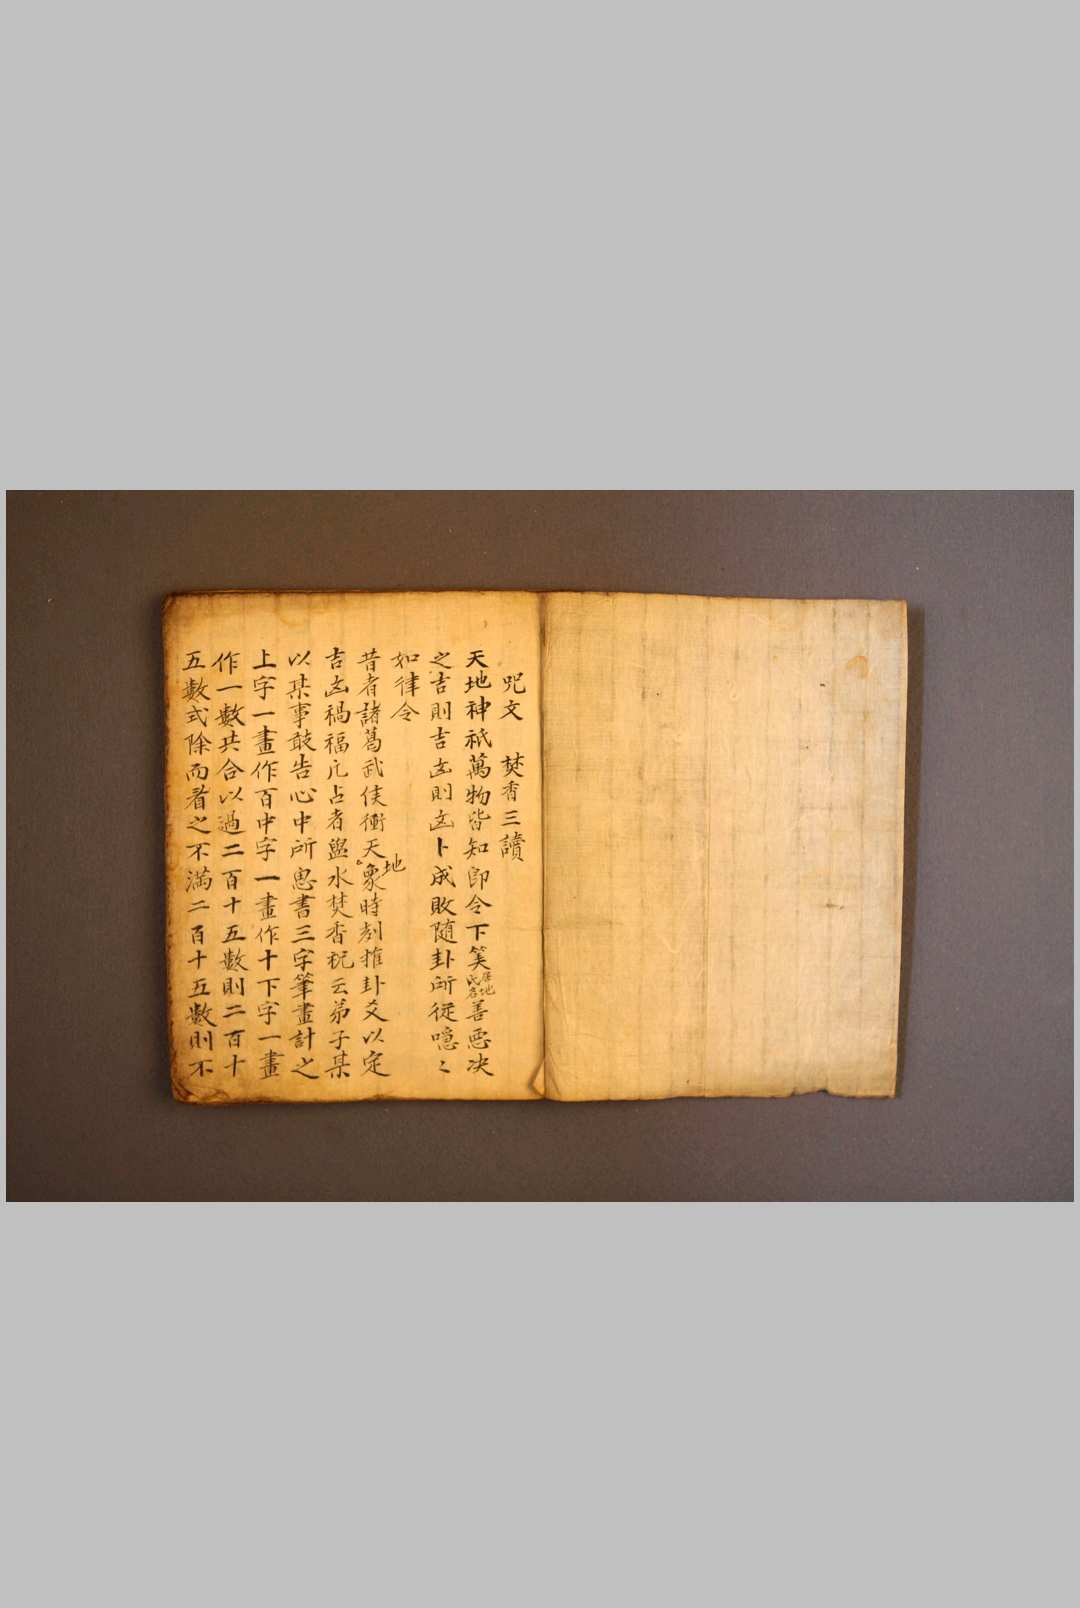 咒文　焚香三讀
天地神祇萬物皆知卽今下筭居地氏名善惡决
之吉則吉凶則凶卜成敗隨卦所從噫〻
如律令
昔者諸葛武侯衝天地象時刻推卦爻以定
吉凶禍福凡占者盥水焚香祝云弟子某
以某事敢告心中所思書三字筆畫計之
上字一畫作百中字一畫作十下字一畫
作一數共合以過二百十五數則二百十
五數式除而看之不滿二百十五數則不